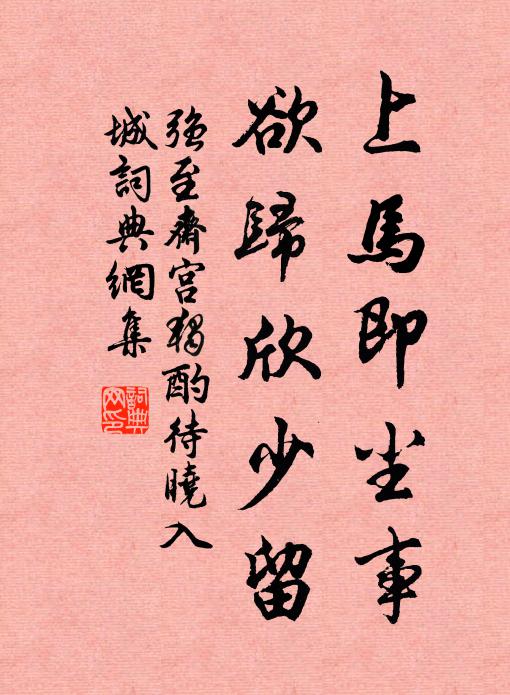 上馬即尘事
欲歸欣少留
強至齋宮獨酌待曉入
城詞典網集
詞典
网印